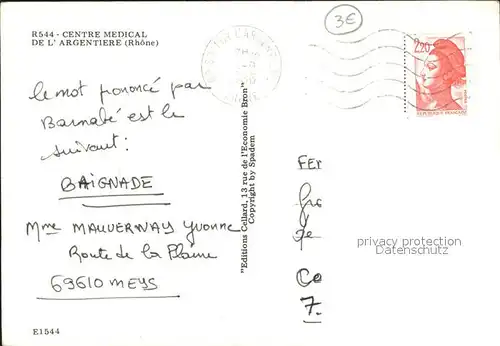 R544 - CENTRE MEDICAL
DE L' ARGENTIERE (Rhône)
3€
2,20
REPUBLIQUE FRANÇAISE
le mot pononcé par
Barnabé est le
suivant:
BAIGNADE
Mme MAUVERNAY Yvonne
Route de la Plaine
69610 MEYS
"Editions Cellard, 13 rue de l'Economie Bron"
Copyright by Spadem
FEr
Co
7.
privacy protection
Datenschutz
E1544